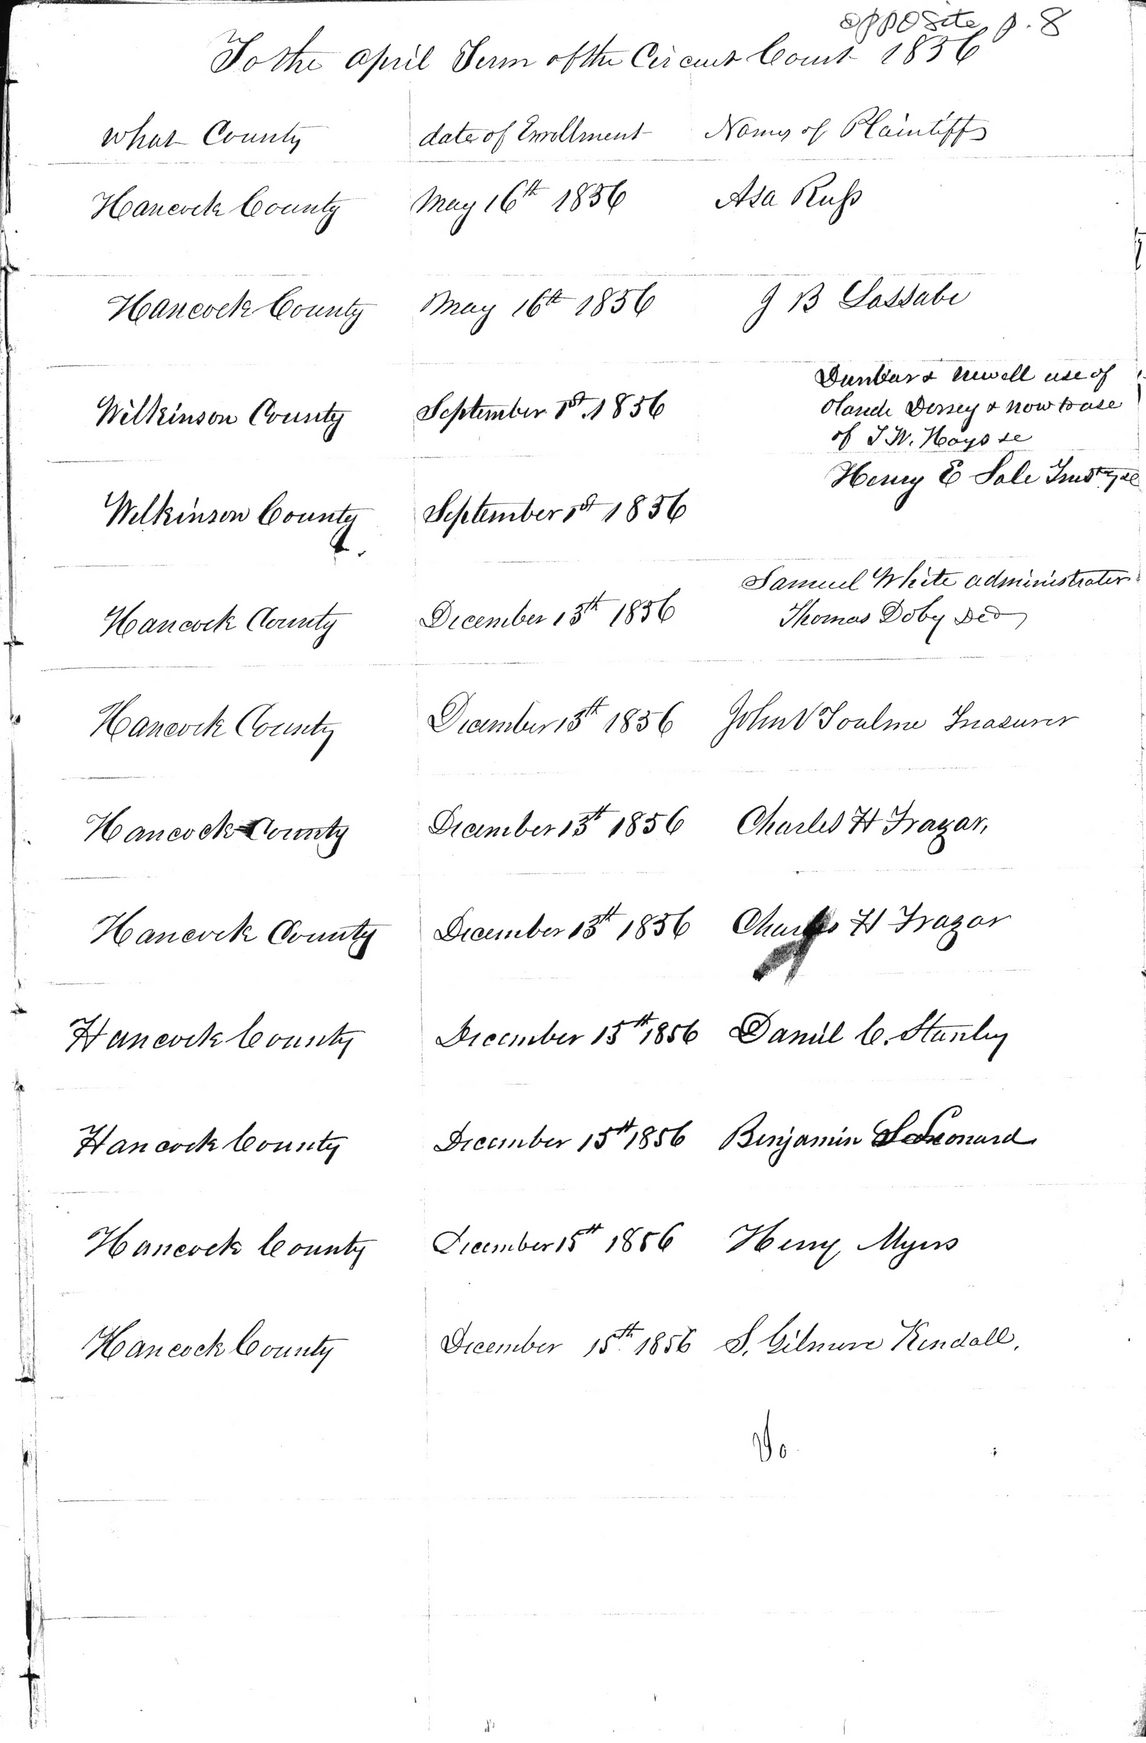 opposite p. 8
To the April Term of the Circuit Court 1856
what County date of Enrollment Names of Plaintiffs
Hancock County May 16th 1856 Asa Russ
Hancock County May 16th 1856 J B Lassabe
Dunbar & Newell use of
Wilkinson County September 1st 1856 Dorsey & now to use
of T. W. Hays se
Henry E Sale
Wilkinson County September 1st 1856
Samuel White administrator
Hancock County December 13th 1856 Thomas Doby Decd
Hancock County December 13th 1856 John V Toulme Treasurer
Hancock County December 13th 1856 Charles H Frazar,
Hancock County December 13th 1856 Charles H Frazar
Hancock County December 15th 1856 Daniel C. Stanley
Hancock County December 15th 1856 Benjamin Leonard
Hancock County December 15th 1856 Henry Myers
Hancock County December 15th 1856 S. Gilmore Kendall,